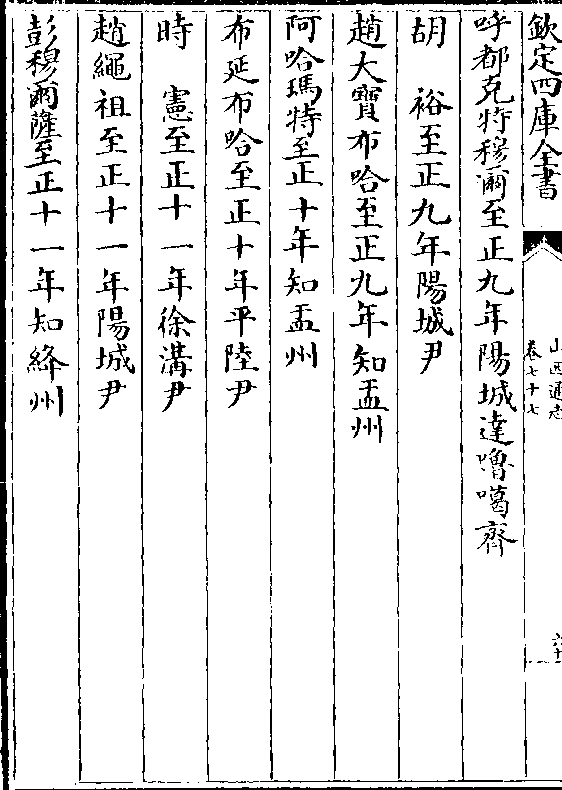 欽定四庫全書
山西通志
卷七十七
六十
呼都克特穆爾至正九年陽城達嚕噶齊
胡　裕至正九年陽城尹
趙大寶布哈至正九年知盂州
阿哈瑪特至正十年知盂州
布延布哈至正十年平陸尹
時　憲至正十一年徐溝尹
趙繩祖至正十一年陽城尹
彭穆爾薩至正十一年知絳州